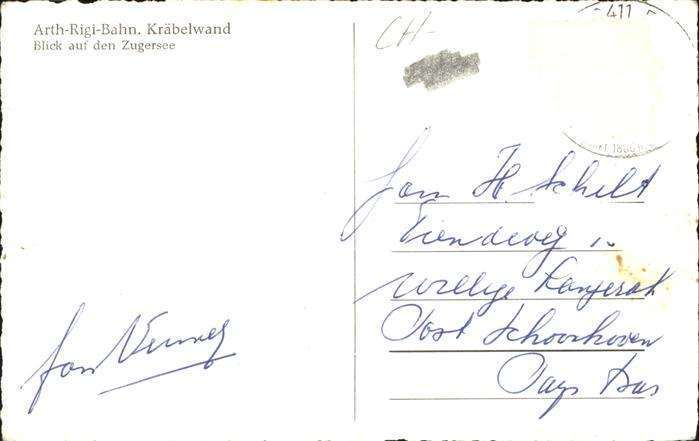 Arth-Rigi-Bahn. Kräbelwand
Blick auf den Zugersee
CH-
411
Fam H. Schelt
Tiendweg
Willige Langerak
Post Schoonhoven
Pays Bas
Jan